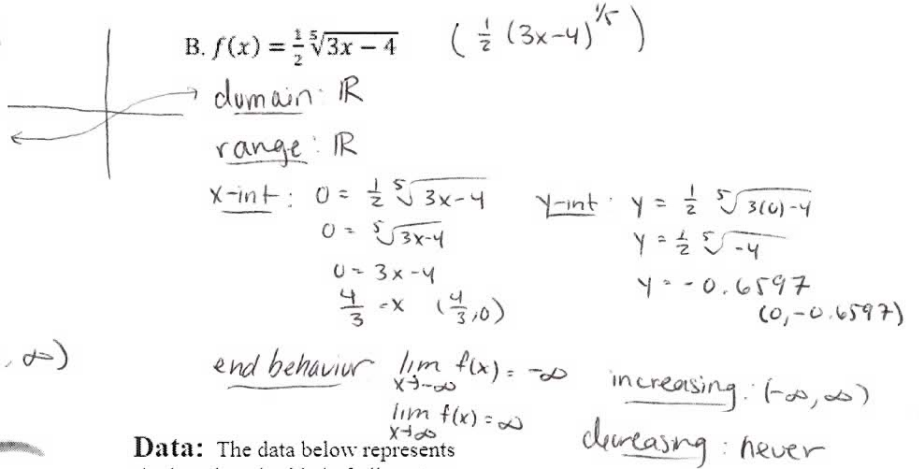 B. f(x) = 1/2 ⁵√(3x − 4) ( 1/2 (3x-4)^(1/5) )
domain: ℝ
range: ℝ
x-int: 0 = 1/2 ⁵√(3x-4)
0 = ⁵√(3x-4)
0 = 3x-4
4/3 = x (4/3, 0)
y-int: y = 1/2 ⁵√(3(0)-4)
y = 1/2 ⁵√(-4)
y = -0.6597
(0, -0.6597)
, ∞)
end behavior lim x→-∞ f(x) = -∞
lim x→∞ f(x) = ∞
increasing: (-∞, ∞)
decreasing: never
Data: The data below represents